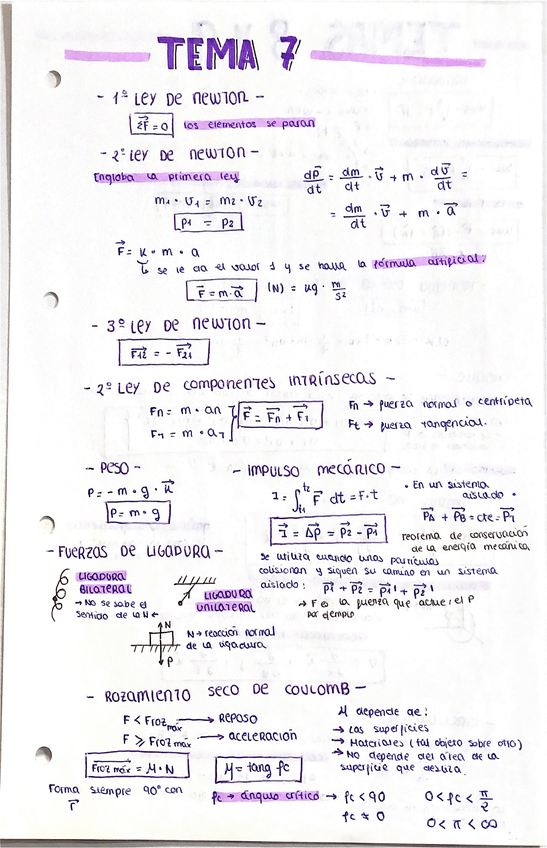 TEMA 7
- 1ª LEY DE NEWTON -
ΣF⃗ = 0 los elementos se paran
- 2ª LEY DE NEWTON -
Engloba la primera ley
m₁ · v₁ = m₂ · v₂
p₁ = p₂
dp⃗/dt = dm/dt · v⃗ + m · dv⃗/dt =
= dm/dt · v⃗ + m · a⃗
F⃗ = k · m · a
↳ se le da el valor 1 y se halla la fórmula artificial.
F⃗ = m · a⃗ (N) = kg · m/s²
- 3ª LEY DE NEWTON -
F₁₂⃗ = - F₂₁⃗
- 2ª LEY DE COMPONENTES INTRÍNSECAS -
Fn = m · an
Fτ = m · aτ
F⃗ = Fn⃗ + Fτ⃗
Fn → fuerza normal o centrípeta
Ft → fuerza tangencial.
- PESO -
P = - m · g · k⃗
P = m · g
- IMPULSO MECÁNICO -
I = ∫t₁t₂ F⃗ dt = F · t
I⃗ = Δp⃗ = p₂⃗ - p₁⃗
· En un sistema
aislado ·
PA⃗ + PB⃗ = cte = PT⃗
teorema de conservación
de la energía mecánica.
se utiliza cuando unas partículas
colisionan y siguen su camino en un sistema
aislado : p₁⃗ + p₂⃗ = p₁⃗' + p₂⃗'
→ F es la fuerza que actúe, el P
por ejemplo
- FUERZAS DE LIGADURA -
LIGADURA
BILATERAL
→ No se sabe el
sentido de la N ←
LIGADURA
UNILATERAL
N
P
N → reacción normal
de la ligadura
- ROZAMIENTO SECO DE COULOMB -
F < Froz máx → REPOSO
F ≥ Froz máx → aceleración
Froz máx⃗ = μ · N
μ = tang φc
Forma siempre 90° con
r⃗
μ depende de:
→ Las superficies
→ Materiales (tal objeto sobre otro)
→ No depende del área de la
superficie que desliza.
φc → ángulo crítico → φc < 90
φc ≠ 0
0 < φc < π/2
0 < π < ∞